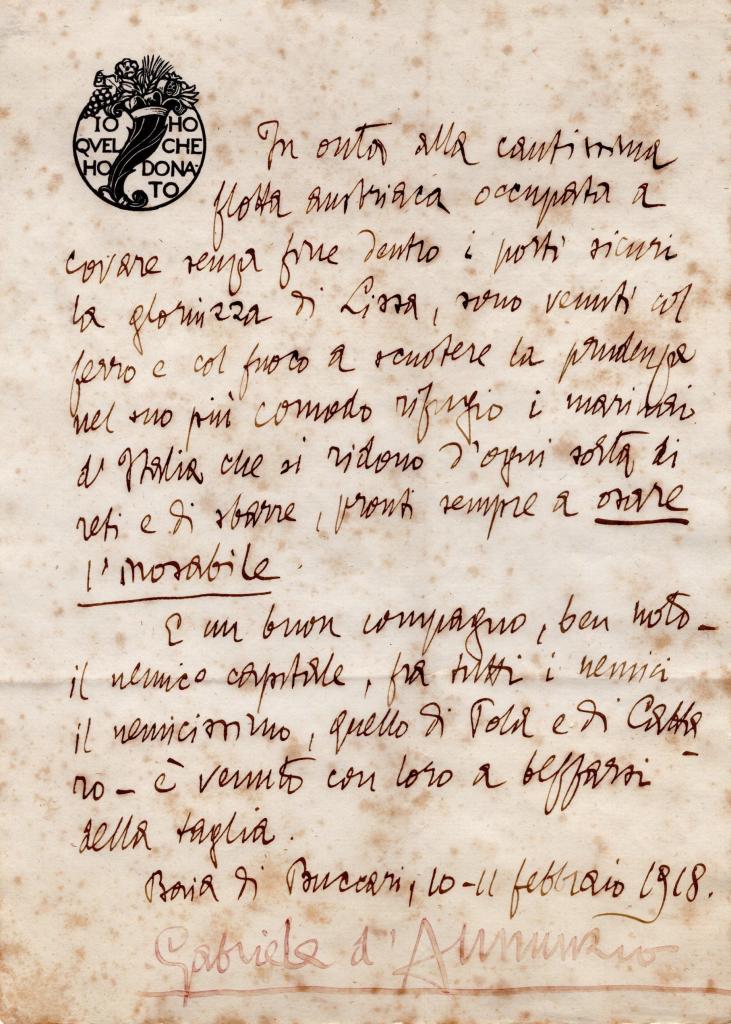 IO HO
QVEL CHE
HO DONA
TO
In onta alla cautissima
flotta austriaca occupata a
covare senza fine dentro i porti sicuri
la gloriuzza di Lissa, sono venuti col
ferro e col fuoco a scuotere la prudenza
nel suo più comodo rifugio i marinai
d'Italia che si ridono d'ogni sorta di
reti e di sbarre, pronti sempre a osare
l'inosabile.
E un buon compagno, ben noto –
il nemico capitale, fra tutti i nemici
il nemicissimo, quello di Pola e di Catta
ro – è venuto con loro a beffarsi
della taglia.
Baia di Buccari, 10-11 febbraio 1918.
Gabriele d'Annunzio